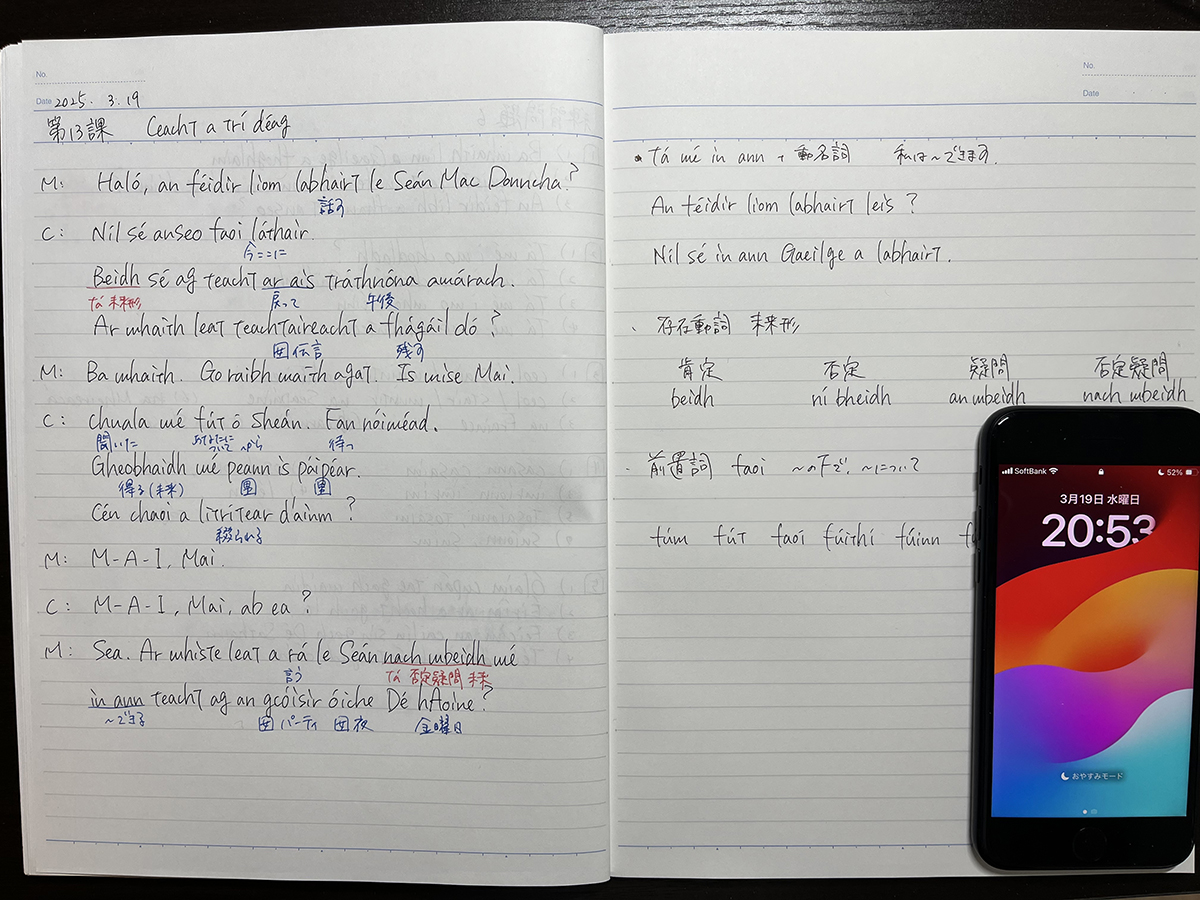 No.
Date 2025. 3. 19
第13課 Ceacht a trí déag
M: Haló, an féidir liom labhairt le Seán Mac Donncha?
話す
C: Níl sé anseo faoi láthair.
今ここに
Beidh sé ag teacht ar ais tráthnóna amárach.
tá 未来形 戻って 午後
Ar mhaith leat teachtaireacht a fhágáil dó?
囡 伝言 残す
M: Ba mhaith. Go raibh maith agat. Is mise Mai.
C: Chuala mé fút ó Sheán. Fan nóiméad.
聞いた あなたについて ~から 待つ
Gheobhaidh mé peann is páipéar.
得る(未来)
Cén chaoi a litrítear d'ainm?
綴られる
M: M-A-I, Mai.
C: M-A-I, Mai, ab ea?
M: Sea. Ar mhiste leat a rá le Seán nach mbeidh mé
言う tá 否定疑問 未来
in ann teacht ag an gcóisir óiche Dé hAoine?
~できる 囡 パーティ 囡 夜 金曜日
No.
Date
・tá mé in ann + 動名詞 私は~できます.
An féidir liom labhairt leis?
Níl sé in ann Gaeilge a labhairt.
・存在動詞 未来形
肯定 否定 疑問 否定疑問
beidh ní bheidh an mbeidh nach mbeidh
・前置詞 faoi ~の下で, ~について
fúm fút faoi fúithi fúinn
SoftBank 52%
3月19日 水曜日
20:53
おやすみモード